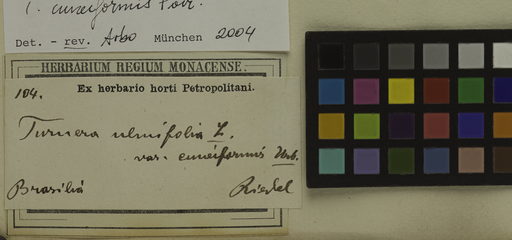 T. cuneiformis Poir.
Det. - rev. Arbo München 2004
HERBARIUM REGIUM MONACENSE.
104. Ex herbario horti Petropolitani.
Turnera ulmifolia L.
var. cuneiformis Urb.
Brasilia
Riedel